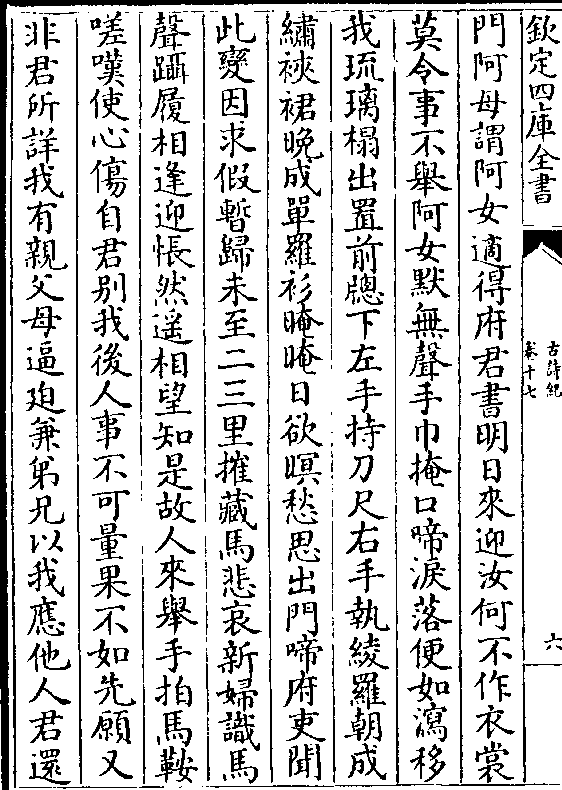 欽定四庫全書
古詩紀
卷十七
六
門阿母謂阿女適得府君書明日來迎汝何不作衣裳
莫令事不舉阿女默無聲手巾掩口啼淚落便如瀉移
我琉璃榻出置前牕下左手持刀尺右手執綾羅朝成
繡裌裙晚成單羅衫晻晻日欲暝愁思出門啼府吏聞
此變因求假暫歸未至二三里摧藏馬悲哀新婦識馬
聲躡履相逢迎悵然遥相望知是故人來舉手拍馬鞍
嗟嘆使心傷自君别我後人事不可量果不如先願又
非君所詳我有親父母逼迫兼弟兄以我應他人君還